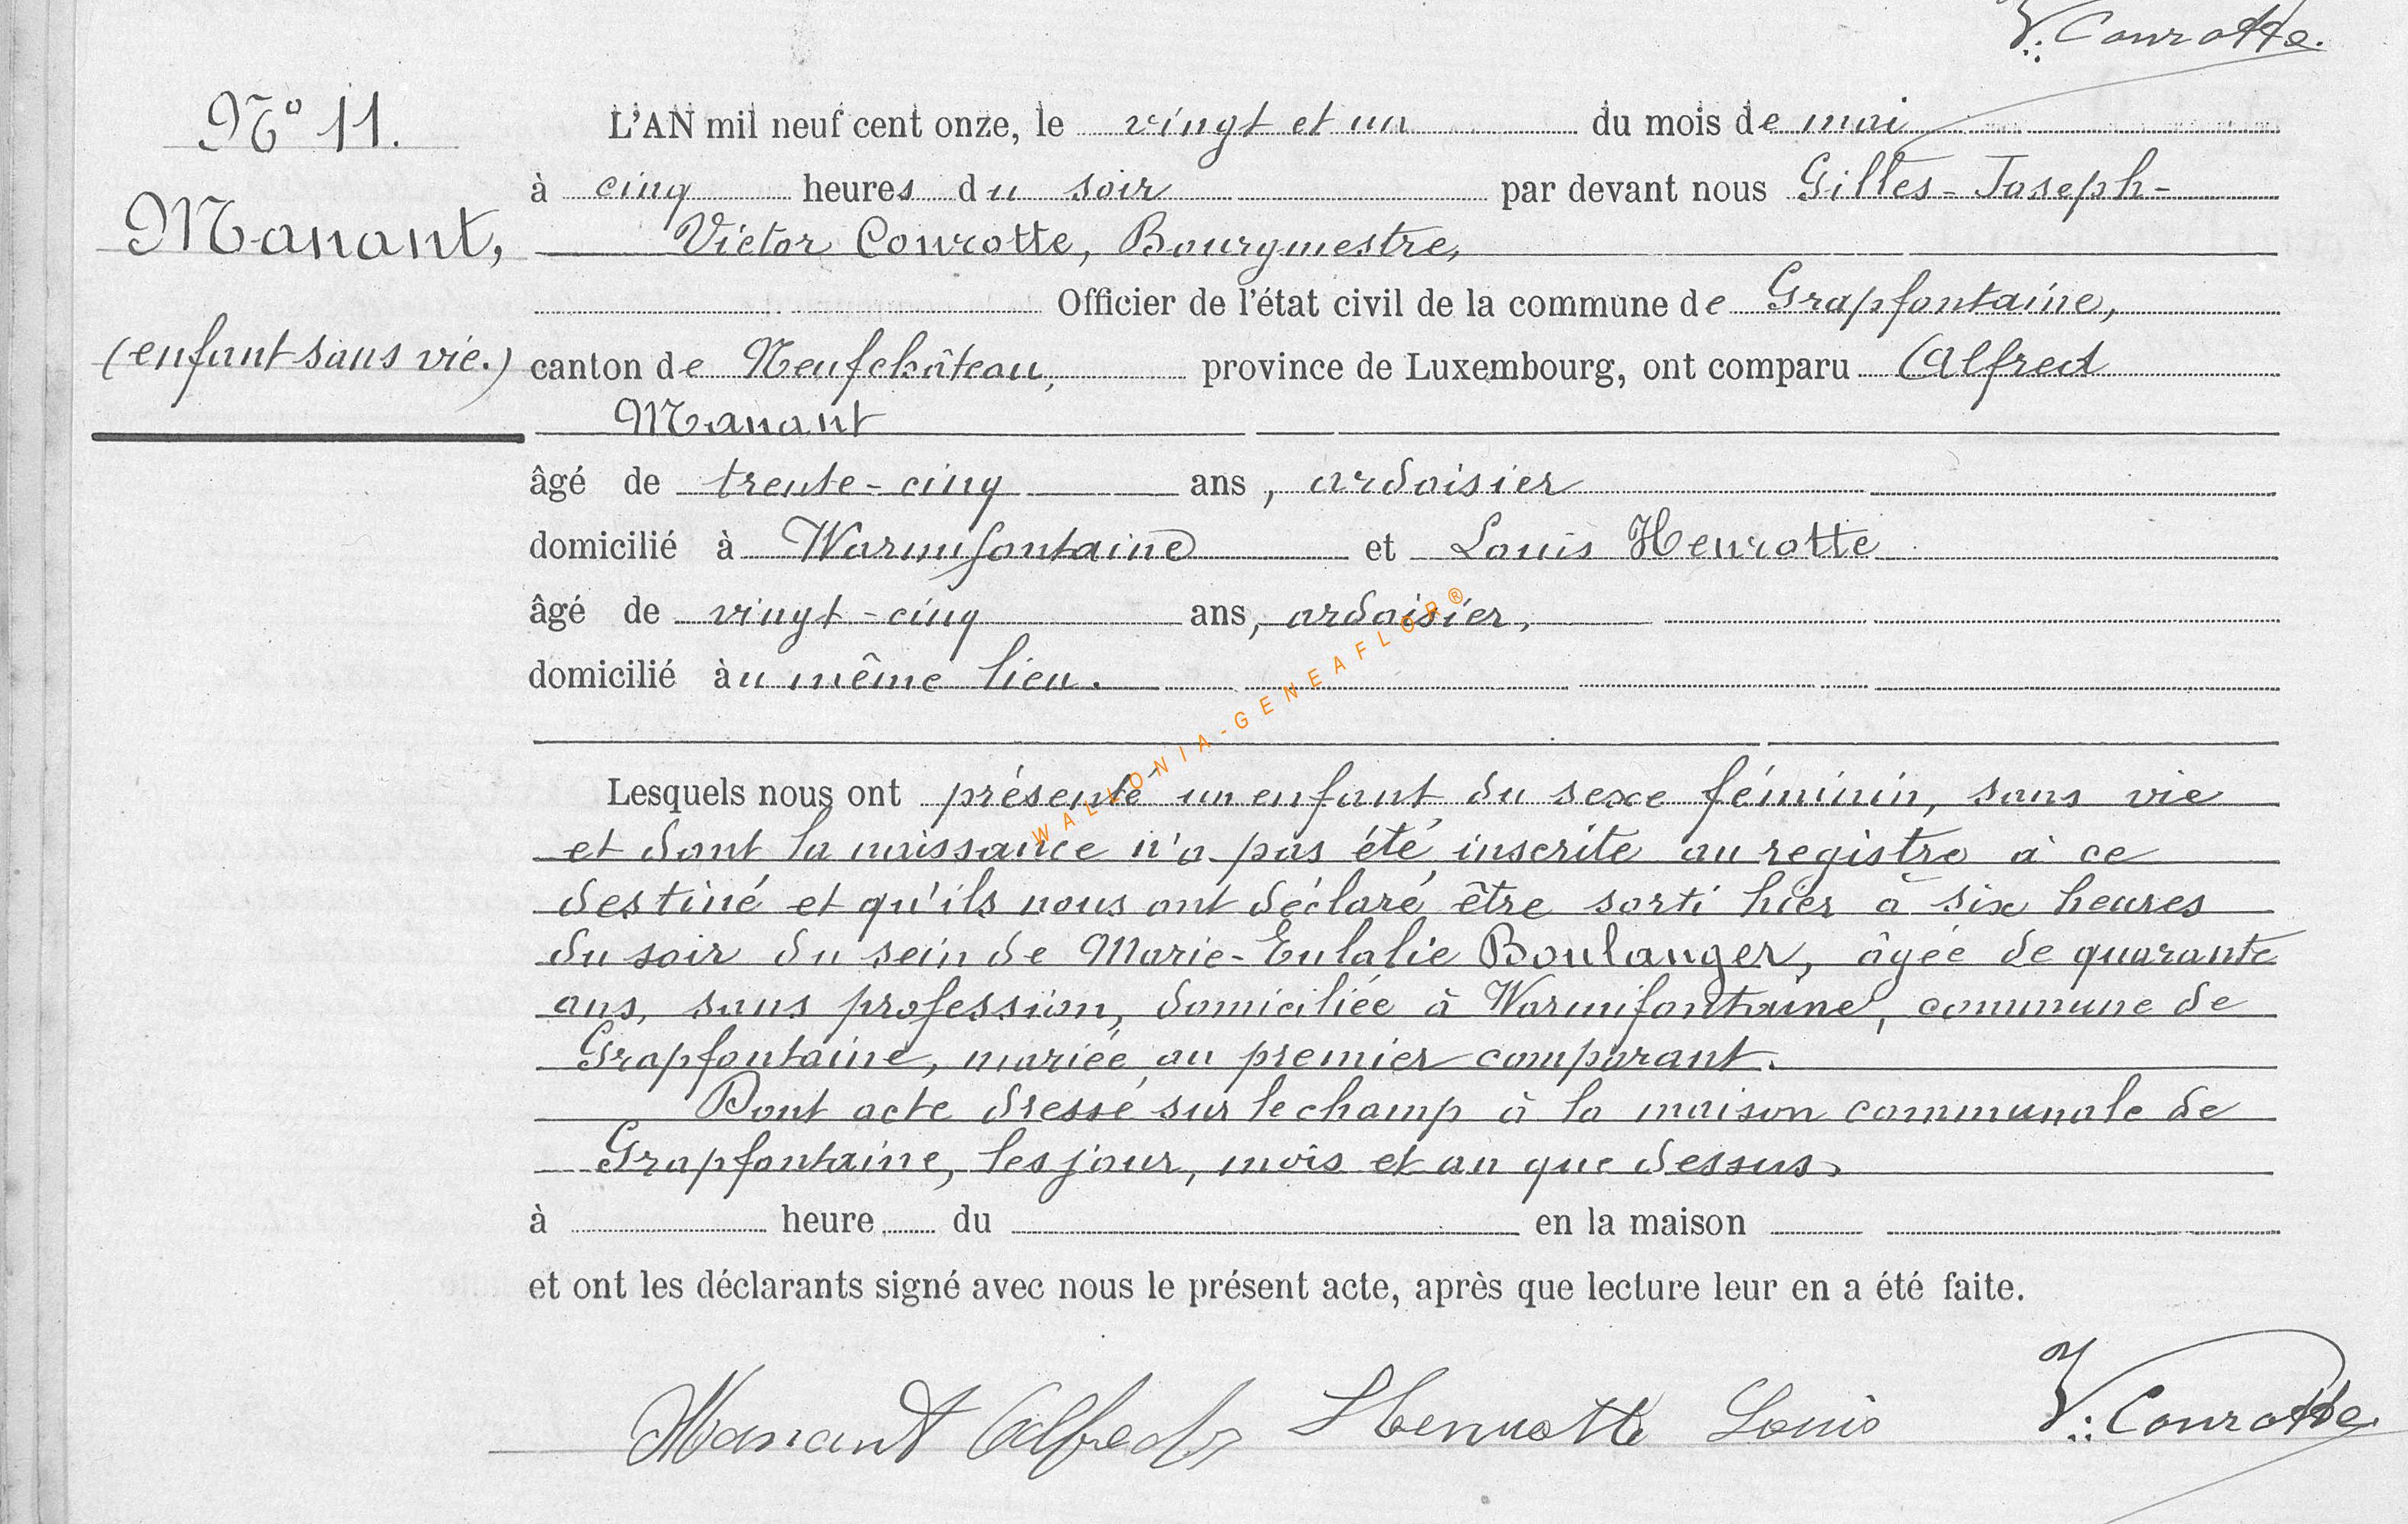 V. Conrotte.
N° 11.
Manant,
(enfant sans vie.)
L'AN mil neuf cent onze, le vingt et un du mois de mai
à cinq heures du soir par devant nous Gilles-Joseph-
Victor Conrotte, Bourgmestre,
Officier de l'état civil de la commune de Grapfontaine,
canton de Neufchâteau, province de Luxembourg, ont comparu Alfred
Manant
âgé de trente-cinq ans, ardoisier
domicilié à Warmifontaine et Louis Henrotte
âgé de vingt-cinq ans, ardoisier,
domicilié àu même lieu.
Lesquels nous ont présenté un enfant du sexe féminin, sans vie
et dont la naissance n'a pas été inscrite au registre à ce
destiné et qu'ils nous ont déclaré être sorti hier à six heures
du soir du sein de Marie-Eulalie Boulanger, âgée de quarante
ans, sans profession, domiciliée à Warmifontaine, commune de
Grapfontaine, mariée au premier comparant.
Dont acte dressé sur le champ à la maison communale de
Grapfontaine, les jour, mois et an que dessus,
à heure du en la maison
et ont les déclarants signé avec nous le présent acte, après que lecture leur en a été faite.
Manant Alfred Henrotte Louis V. Conrotte.
WALLONIA-GENEAFLOR®